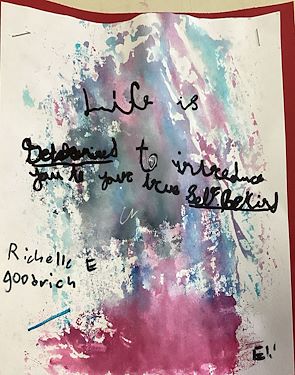 Life is
Determined to introduce
you to your true Self Be Kind
Richelle E
goodrich